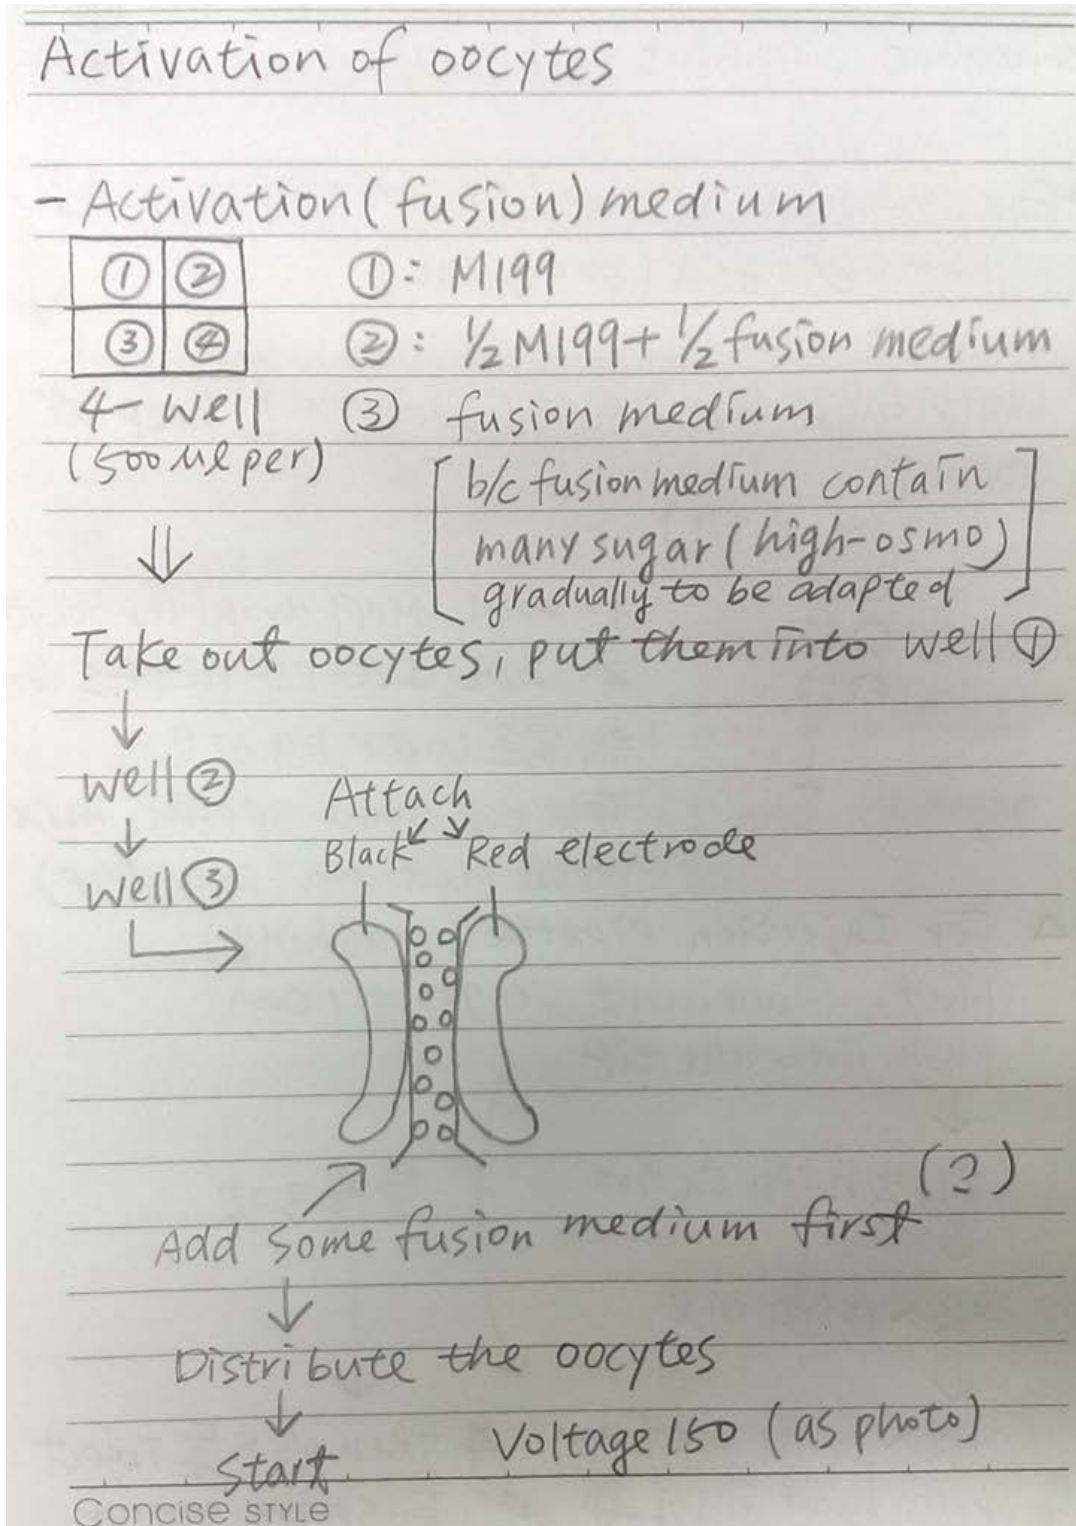 Activation of oocytes
- Activation (fusion) medium
① ②
③ ④
4-well
(500 μl per)
①: M199
②: 1/2 M199 + 1/2 fusion medium
③ fusion medium
[b/c fusion medium contain
many sugar (high-osmo)
gradually to be adapted]
⇓
Take out oocytes, put them into well ①
↓
well ②
↓
well ③
Attach
Black ↙ ↘ Red electrode
Add some fusion medium first (?)
↓
Distribute the oocytes
↓
Start
Voltage 150 (as photo)
Concise STYLE